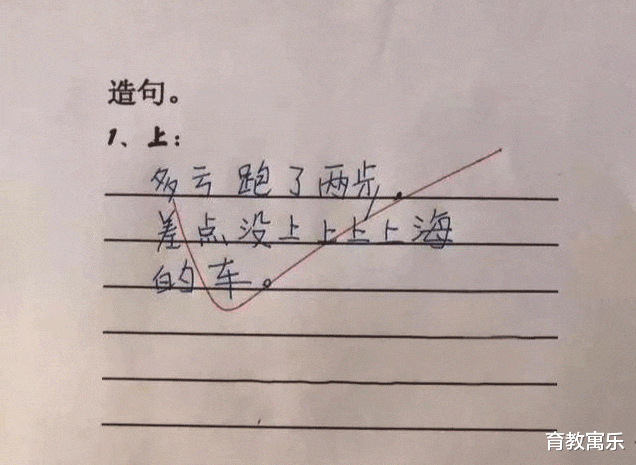 造句。
1、上：
多亏跑了两步，
差点没上上上上海
的车。
育教寓乐